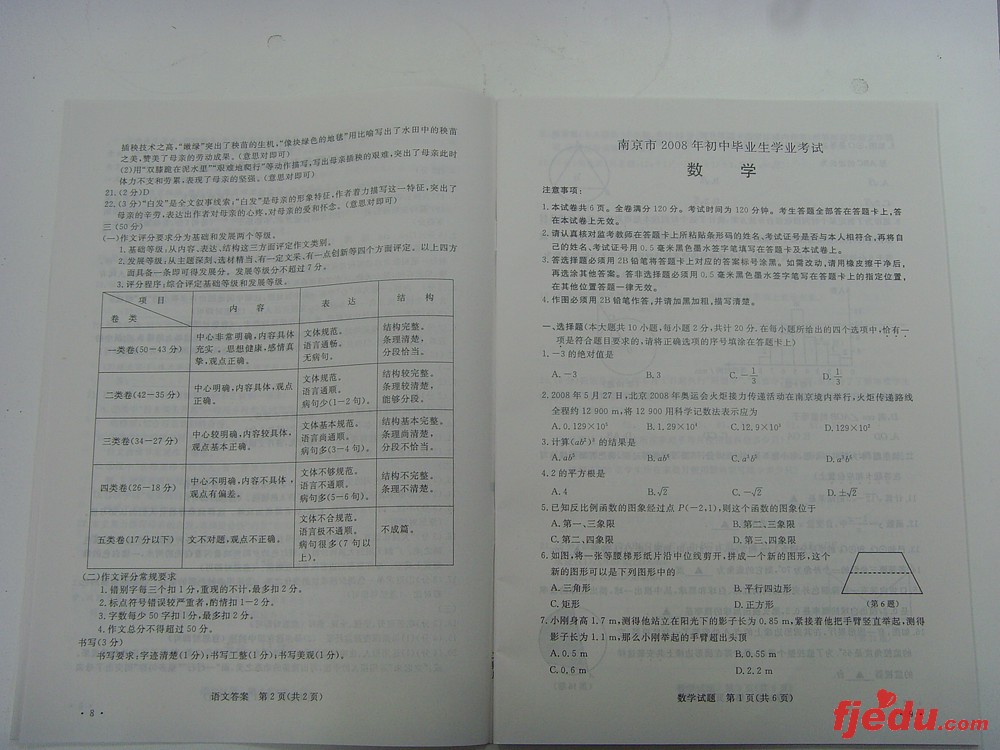 插秧技术之高,“嫩绿”突出了秧苗的生机,“像块绿色的地毯”用比喻写出了水田中的秧苗
之美,赞美了母亲的劳动成果。(意思对即可)
(2)用“双膝跪在泥水里”“艰难地爬行”等动作描写,写出母亲插秧的艰难,突出了母亲此时
体力不支和劳累,表现了母亲的坚强。(意思对即可)
21.(2分)D
22.(3分)“白发”是全文叙事线索;“白发”是母亲的形象特征,作者着力描写这一特征,突出了
母亲的辛劳,表达出作者对母亲的心疼,对母亲的爱和怀念。(意思对即可)
三(50分)
(一)作文评分要求分为基础和发展两个等级。
1.基础等级:从内容、表达、结构这三方面评定作文类别。
2.发展等级:从主题深刻、选材精当、有一定文采、有一点创新等四个方面评定。以上四方
面具备一条即可得发展分。发展等级分不超过7分。
3.评分程序:综合评定基础等级和发展等级。
项 目
卷 类
内 容
表 达
结 构
一类卷(50-43分)
中心非常明确,内容具体
充实、思想健康,感情真
挚,观点正确。
文体规范。
语言通畅。
无病句。
结构完整。
条理清楚,
分段恰当。
二类卷(42-35分)
中心明确,内容具体,观点
正确。
文体规范。
语言通顺。
病句少(1-2句)。
结构较完整。
条理较清楚,
能够分段。
三类卷(34-27分)
中心较明确,内容较具体,
观点基本正确。
文体基本规范。
语言尚通顺。
病句多(3-4句)。
结构基本完整。
条理尚清楚,
分段不恰当。
四类卷(26-18分)
中心不明确,内容不具体,
观点有偏差。
文体不够规范。
语言不通顺。
病句多(5-6句)。
结构不完整。
条理不清楚。
五类卷(17分以下)
文不对题,观点不正确。
文体不合规范。
语言极不通顺。
病句很多(7句以
上)。
不成篇。
(二)作文评分常规要求
1.错别字每三个扣1分,重现的不计,最多扣2分。
2.标点符号错误较严重者,酌情扣1-2分。
3.字数每少50字扣1分,最多扣2分。
4.作文总分不得超过50分。
书写(3分)
书写要求:字迹清楚(1分);书写工整(1分);书写美观(1分)。
语文答案 第2页(共2页)
·8·
南京市2008年初中毕业生学业考试
数 学
注意事项:
1.本试卷共6页。全卷满分120分。考试时间为120分钟。考生答题全部答在答题卡上,答
在本试卷上无效。
2.请认真核对监考教师在答题卡上所粘贴条形码的姓名、考试证号是否与本人相符合,再将自
己的姓名、考试证号用0.5毫米黑色墨水签字笔填写在答题卡及本试卷上。
3.答选择题必须用2B铅笔将答题卡上对应的答案标号涂黑。如需改动,请用橡皮擦干净后,
再选涂其他答案。答非选择题必须用0.5毫米黑色墨水签字笔写在答题卡上的指定位置,
在其他位置答题一律无效。
4.作图必须用2B铅笔作答,并请加黑加粗,描写清楚。
一、选择题(本大题共10小题,每小题2分,共计20分.在每小题所给出的四个选项中,恰有一
项是符合题目要求的,请将正确选项的序号填涂在答题卡上)
1.-3的绝对值是
A.-3 B.3 C.-1/3 D.1/3
2.2008年5月27日,北京2008年奥运会火炬接力传递活动在南京境内举行,火炬传递路线
全程约12 900 m,将12 900用科学记数法表示应为
A.0.129×10⁵ B.1.29×10⁴ C.12.9×10³ D.129×10²
3.计算(ab²)³的结果是
A.ab⁵ B.ab⁶ C.a³b⁵ D.a³b⁶
4.2的平方根是
A.4 B.√2 C.-√2 D.±√2
5.已知反比例函数的图象经过点P(-2,1),则这个函数的图象位于
A.第一、三象限 B.第二、三象限
C.第二、四象限 D.第三、四象限
6.如图,将一张等腰梯形纸片沿中位线剪开,拼成一个新的图形,这个
新的图形可以是下列图形中的
A.三角形 B.平行四边形
C.矩形 D.正方形
(第6题)
7.小刚身高1.7 m,测得他站立在阳光下的影子长为0.85 m,紧接着他把手臂竖直举起,测得
影子长为1.1 m,那么小刚举起的手臂超出头顶
A.0.5 m B.0.55 m
C.0.6 m D.2.2 m
数学试题 第1页(共6页)
fjedu.com